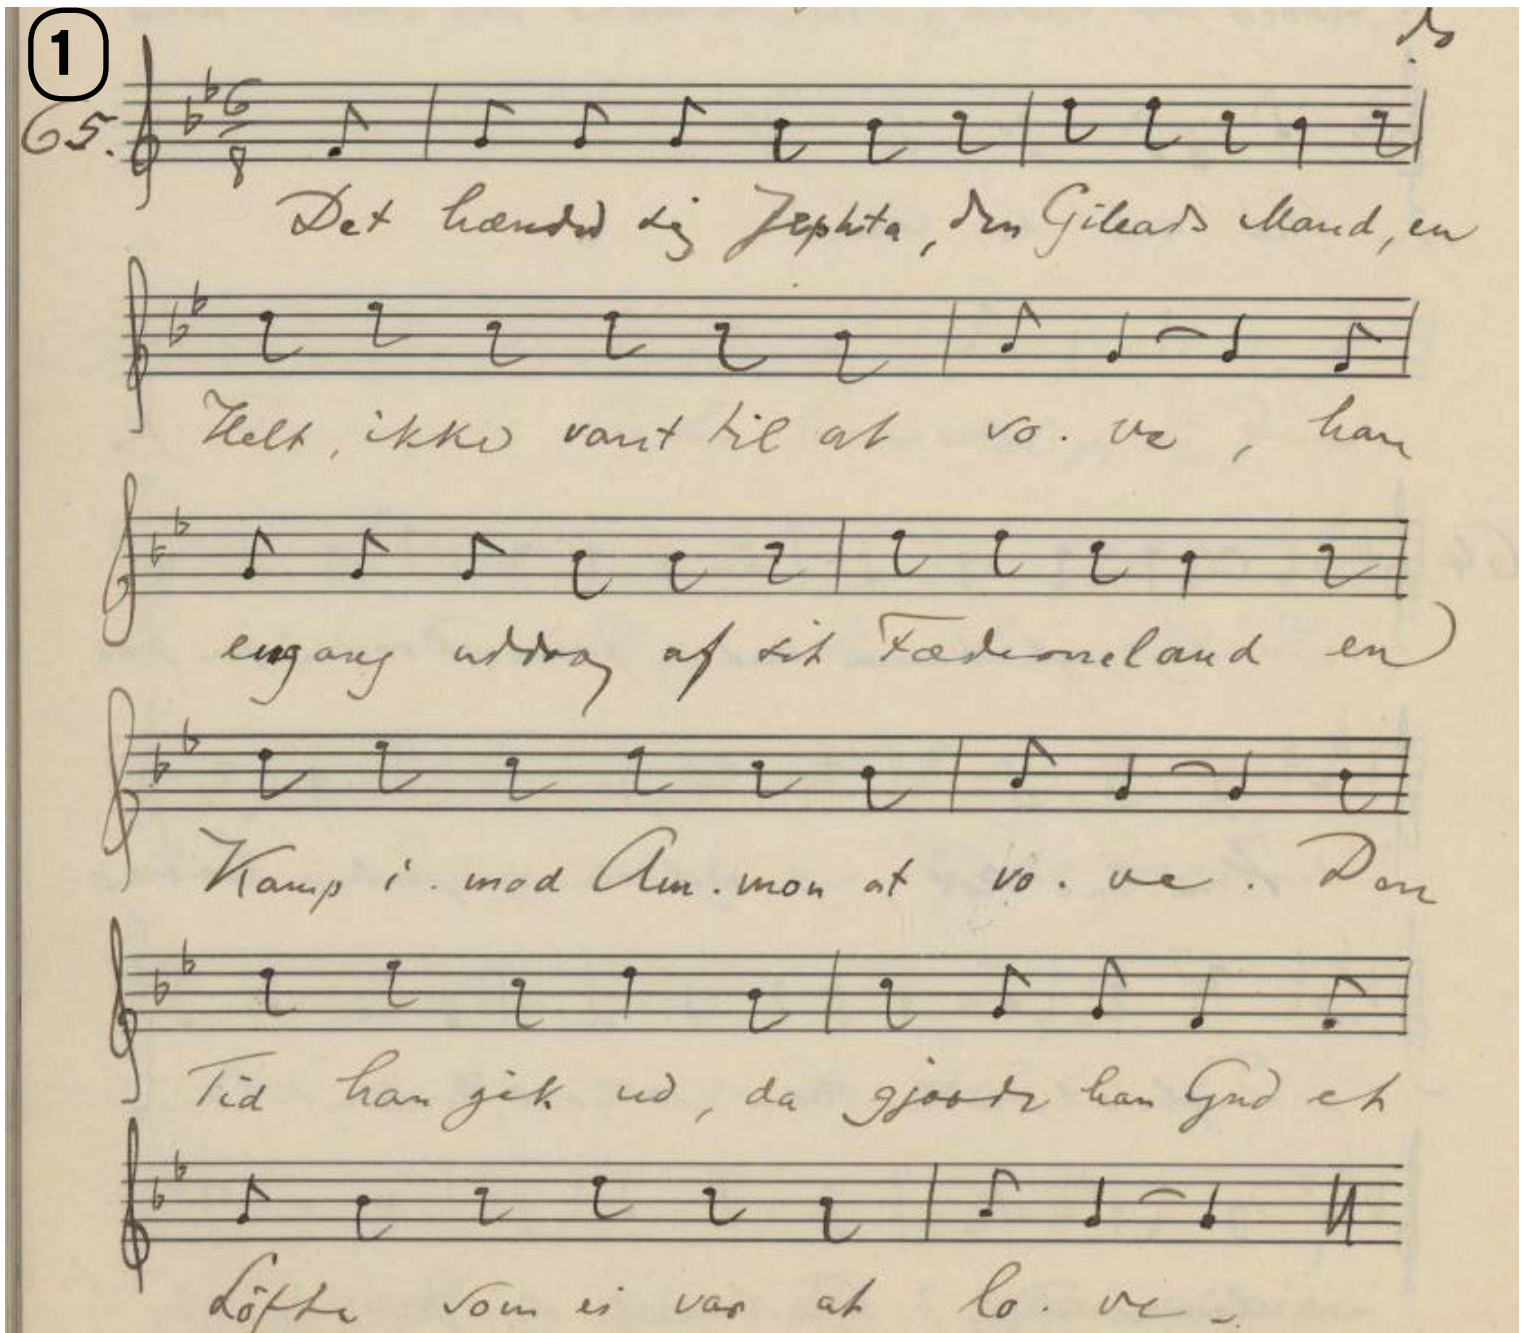 1
do
65.
6
8
Det hænded sig Jephta, den Gileads Mand, en
Helt, ikke vant til at vo. ve, han
engang uddrog af sit Fædreneland en
Kamp i. mod Am. mon at vo. ve. Den
Tid han gik ud, da gjorde han Gud et
Löfte som ei var at lo. ve.